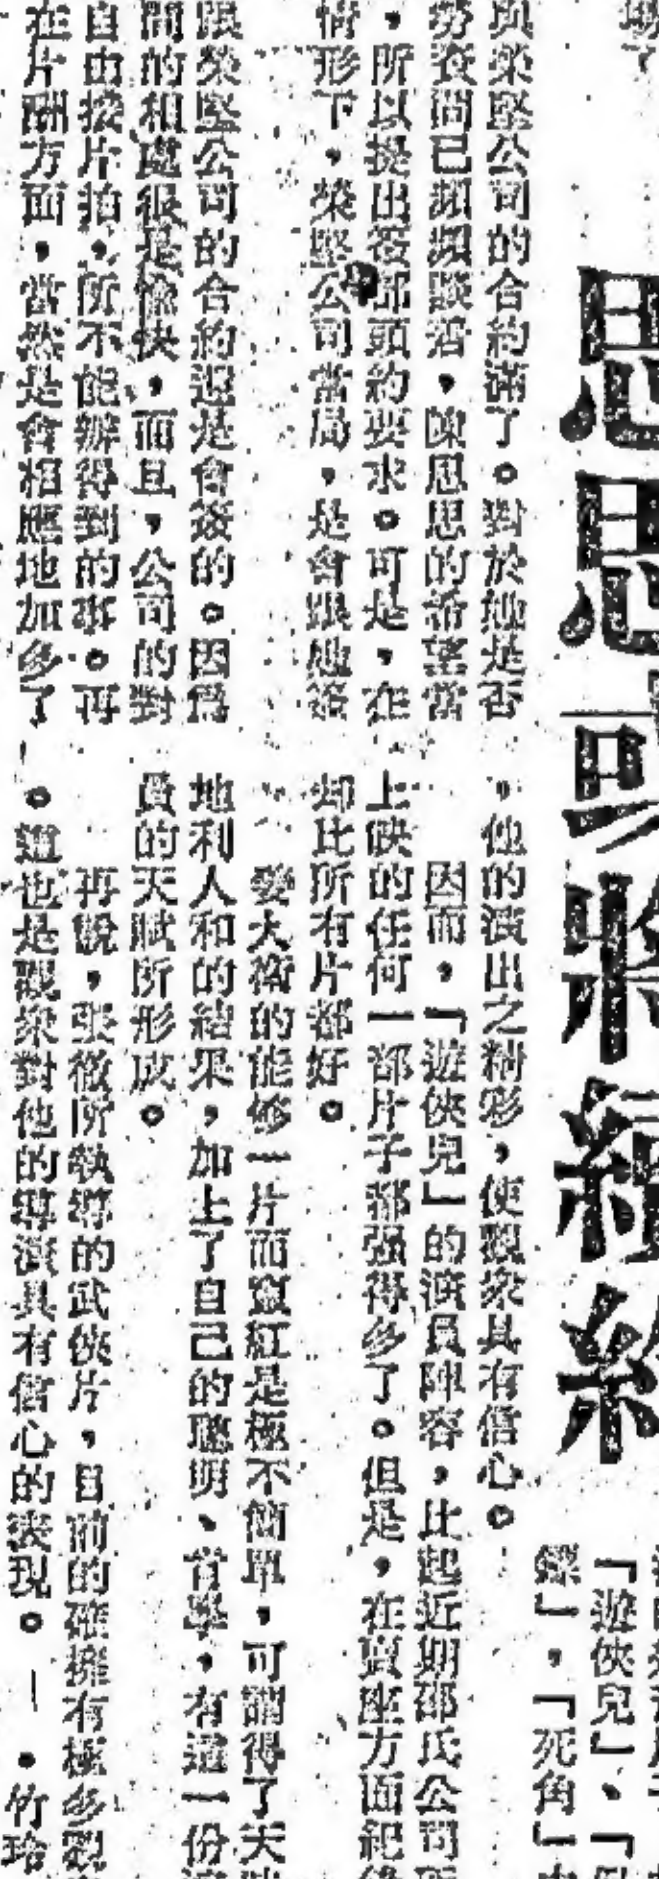 場了
思思即將續約
與榮堅公司的合約滿了。對於她是否
勞資間已頻頻談着，陳思思的希望當
，所以提出簽部頭約要求。可是，在
情形下，榮堅公司當局，是會跟她簽
跟榮堅公司的合約還是會簽的。因爲
間的相處很是愉快，而且，公司的對
自由按片拍，所不能辦得到的事。再
在片酬方面，當然是會相應地加多了
「遊俠兒」、「
鏢」，「死角」
，他的演出之精彩，使觀衆具有信心。
因而，「遊俠兒」的演員陣容，比起近期邵氏公司所
上映的任何一部片子都强得多了。但是，在賣座方面紀
却比所有片都好。
姜大衞的能够一片而竄紅是極不簡單，可謂得了天時
地利人和的結果，加上了自己的聰明、肯學，有這一份
員的天賦所形成。
再說，張徹所執導的武俠片，目前的確擁有極多觀
。這也是觀衆對他的導演具有信心的表現。—・竹玲